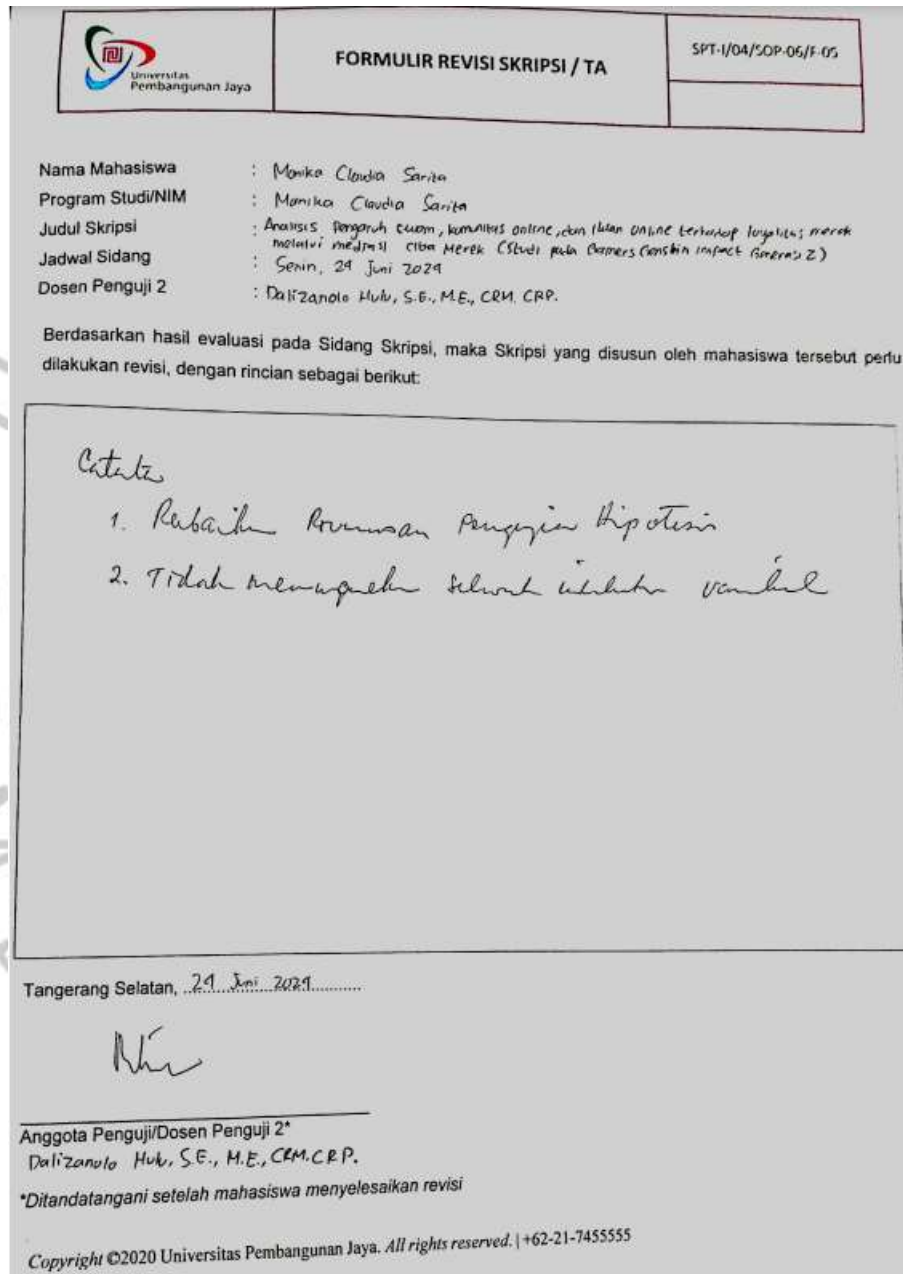 Universitas
Pembangunan Jaya
FORMULIR REVISI SKRIPSI / TA
SPT-I/04/SOP-06/F-05
Nama Mahasiswa : Monika Claudia Sarita
Program Studi/NIM : Monika Claudia Sarita
Judul Skripsi : Analisis Pengaruh ewom, komunitas online, dan iklan online terhadap loyalitas merek
melalui mediasi citra Merek (Studi pada Gamers Genshin Impact Generasi Z)
Jadwal Sidang : Senin, 24 Juni 2024
Dosen Penguji 2 : Dalizanolo Hulu, S.E., M.E., CRM. CRP.
Berdasarkan hasil evaluasi pada Sidang Skripsi, maka Skripsi yang disusun oleh mahasiswa tersebut perlu
dilakukan revisi, dengan rincian sebagai berikut:
Catatan
1. Perbaiki Rumusan Pengujian Hipotesis
2. Tidak seluruh variabel
Tangerang Selatan, 24 Juni 2024
Anggota Penguji/Dosen Penguji 2*
Dalizanolo Hulu, S.E., M.E., CRM.CRP.
*Ditandatangani setelah mahasiswa menyelesaikan revisi
Copyright ©2020 Universitas Pembangunan Jaya. All rights reserved. | +62-21-7455555